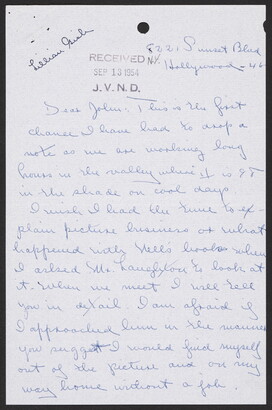 Lillian Gish
8221 Sunset Blvd
RECEIVED N.Y.
Hollywood - 46
SEP 13 1954
J. V. N. D.
Dear John: This is the first
chance I have had to drop a
note as we are working long
hours in the valley where it is 98
in the shade on cool days.
I wish I had the time to ex-
plain picture business or what
happened with Nell's book when
I asked Mr. Laughton to look at
it. When we meet I will tell
you in detail. I am afraid if
I approached him in the manner
you suggest I would find myself
out of the picture and on my
way home without a job.